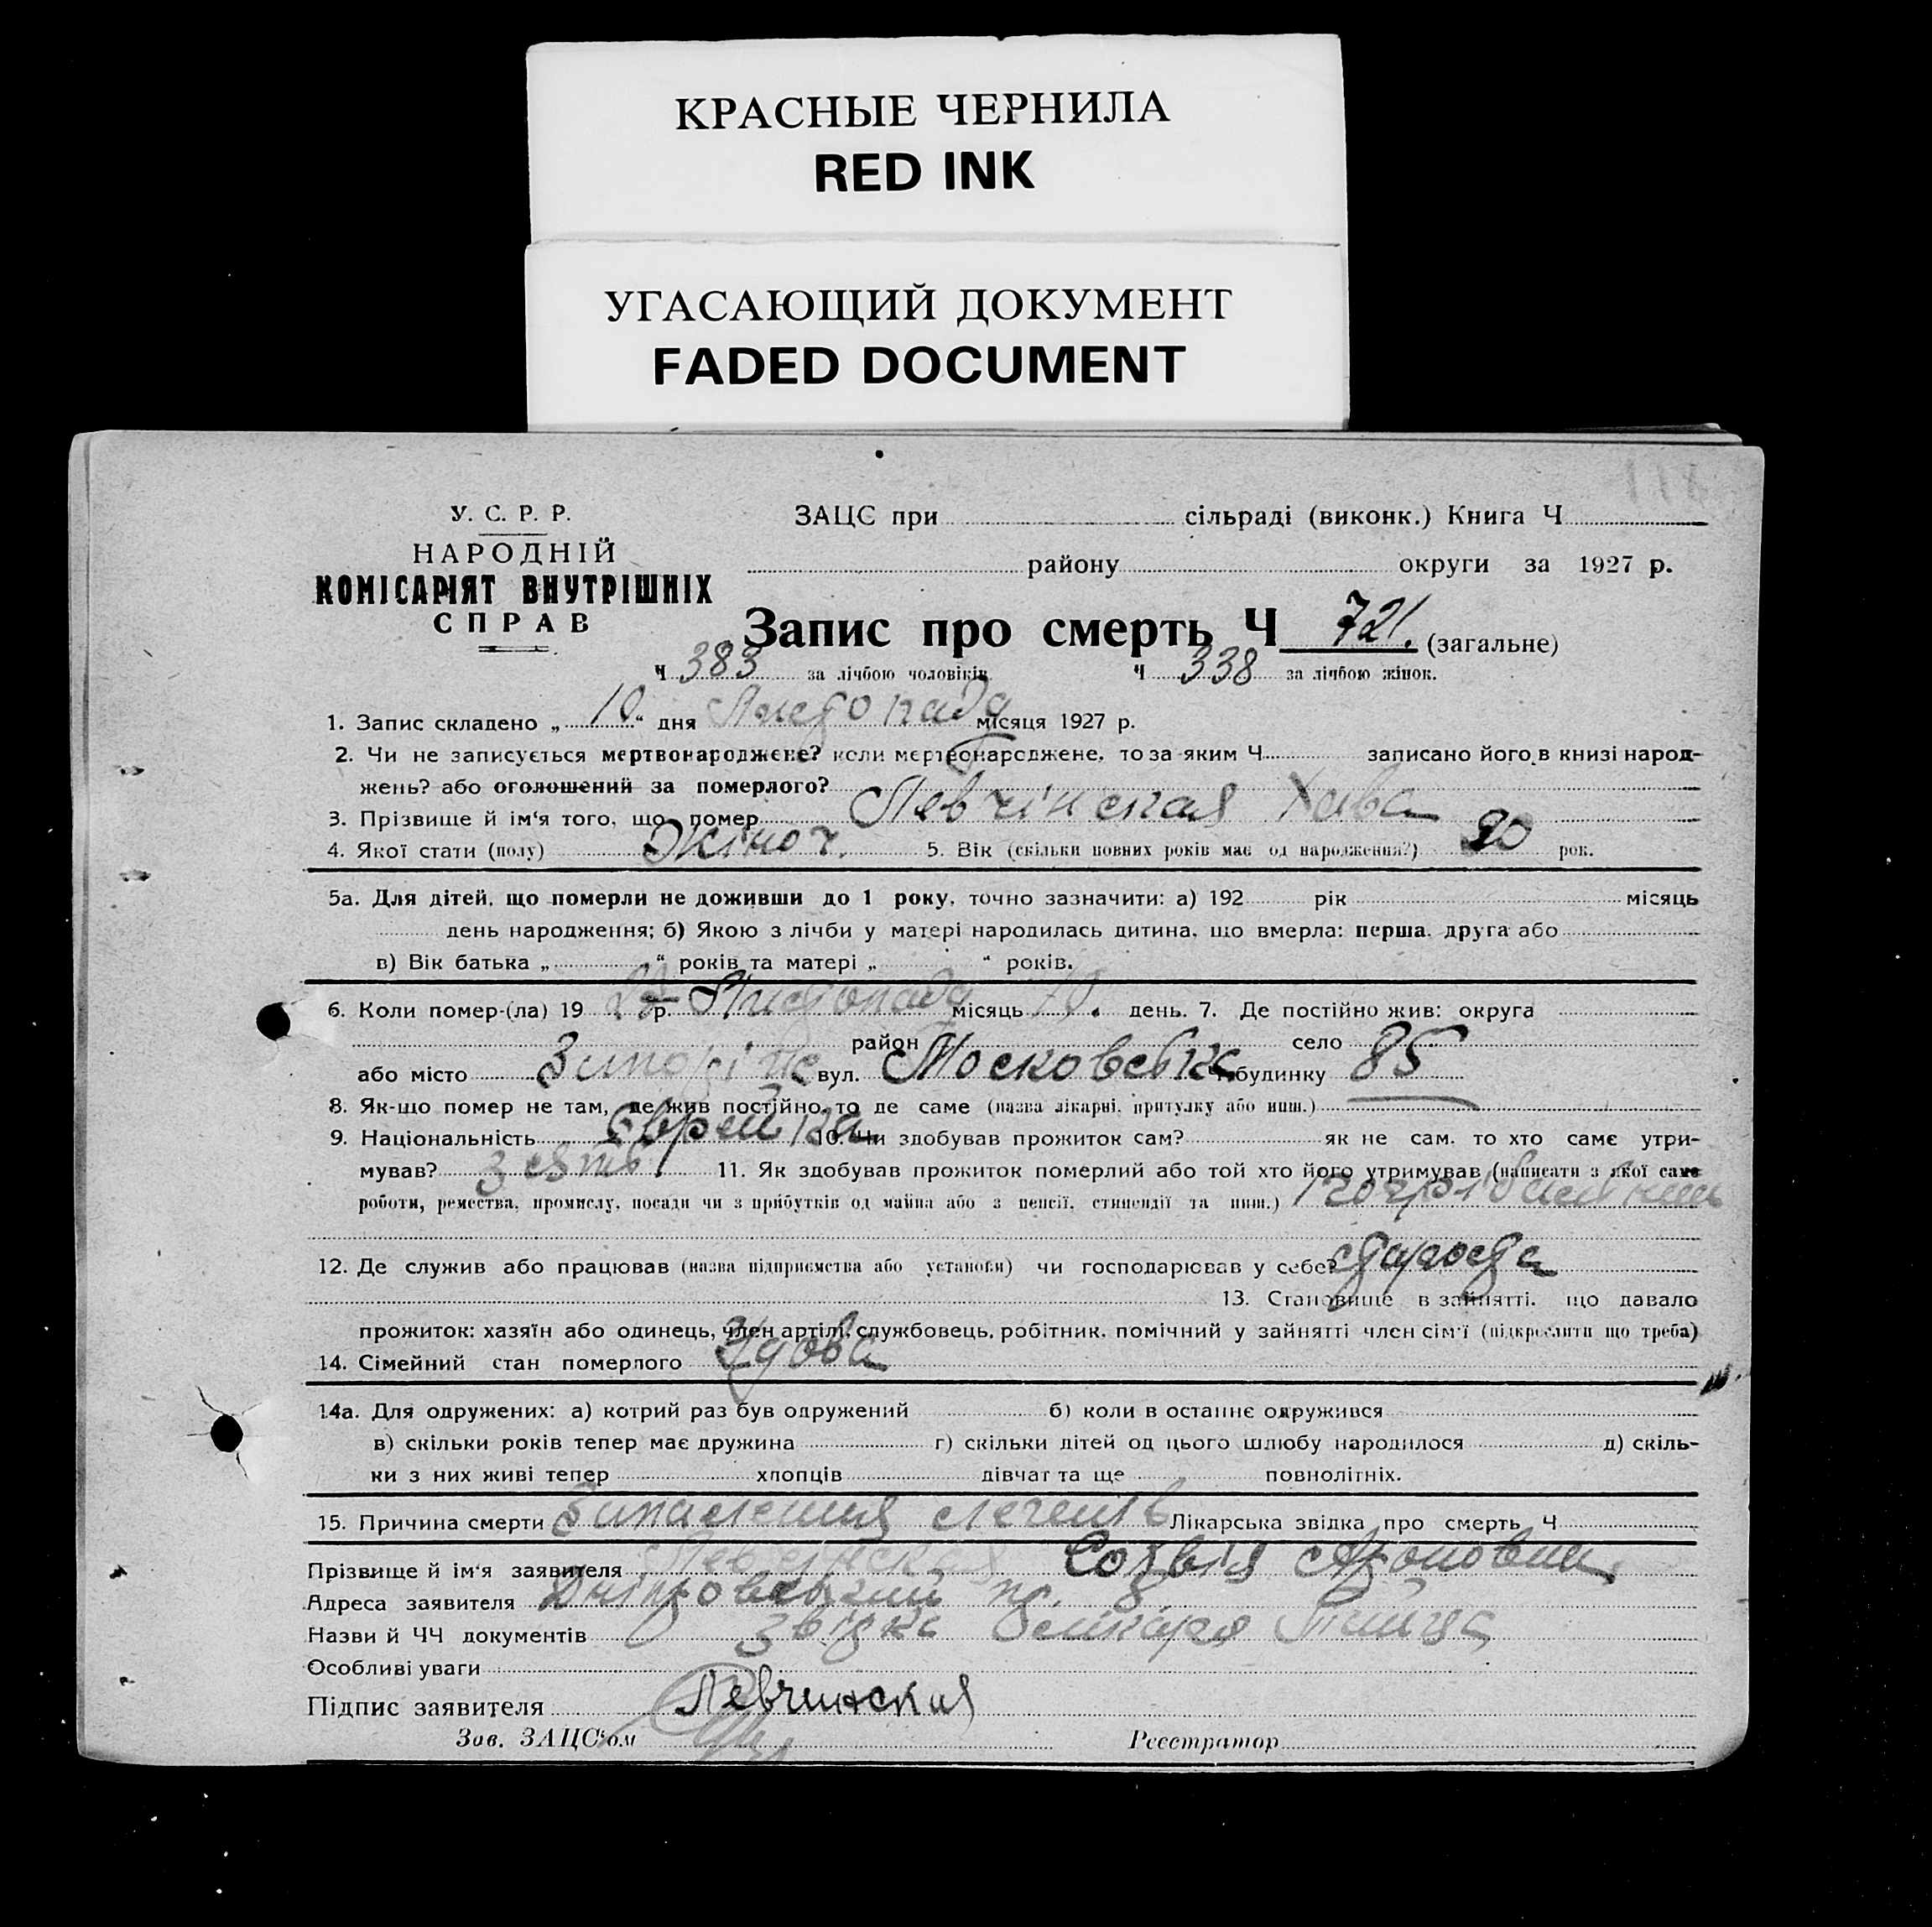 КРАСНЫЕ ЧЕРНИЛА
RED INK
УГАСАЮЩИЙ ДОКУМЕНТ
FADED DOCUMENT
У. С. Р. Р.
НАРОДНІЙ
КОМІСАРІЯТ ВНУТРІШНІХ
СПРАВ
ЗАЦС при сільраді (виконк.) Книга Ч
району округи за 1927 р.
Запис про смерть Ч 721. (загальне)
Ч 383 за лічбою чоловіків Ч 338 за лічбою жінок.
1. Запис складено „ 10 “ дня Листопада місяця 1927 р.
2. Чи не записується мертвонароджене? коли мертвонароджене, то за яким Ч записано його в книзі народ-
жень? або оголошений за померлого?
3. Прізвище й ім‘я того, що помер Левчінская Хава
4. Якої стати (полу) Жіноч. 5. Вік (скільки повних років має од народження?) 90 рок.
5а. Для дітей, що померли не доживши до 1 року, точно зазначити: а) 192 рік місяць
день народження; б) Якою з лічби у матері народилась дитина, що вмерла: перша, друга або
в) Вік батька „ “ років та матері „ “ років.
6. Коли помер-(ла) 19 27 р. Листопада місяць 10. день. 7. Де постійно жив: округа
район село
або місто Запоріже вул. Московська будинку 85
8. Як-що помер не там, де жив постійно, то де саме (назва лікарні, притулку або инш.)
9. Національність Єврейка 10. Чи здобував прожиток сам? як не сам, то хто саме утри-
мував? зять 11. Як здобував прожиток померлий або той хто його утримував (написати з якої саме
роботи, ремества, промислу, посади чи з прибутків од майна або з пенсії, стипендії та инш.)
12. Де служив або працював (назва підприємства або установи) чи господарював у себе? староста
13. Становище в зайнятті, що давало
прожиток: хазяїн або одинець, член артілі, службовець, робітник, помічний у зайнятті член сім‘ї (підкреслити що треба)
14. Сімейний стан померлого Удова
14а. Для одружених: а) котрий раз був одружений б) коли в останнє одружився
в) скільки років тепер має дружина г) скільки дітей од цього шлюбу народилося д) скіль-
ки з них живі тепер хлопців дівчат та ще повнолітніх.
15. Причина смерти Запалення легенів Лікарська звідка про смерть Ч
Прізвище й ім‘я заявителя Левчінская Софвія Ароновна
Адреса заявителя Дніпровський пр. 8
Назви й ЧЧ документів звідка лікаря
Особливі уваги
Підпис заявителя Левчинская
Зав. ЗАЦС‘ом Реєстратор